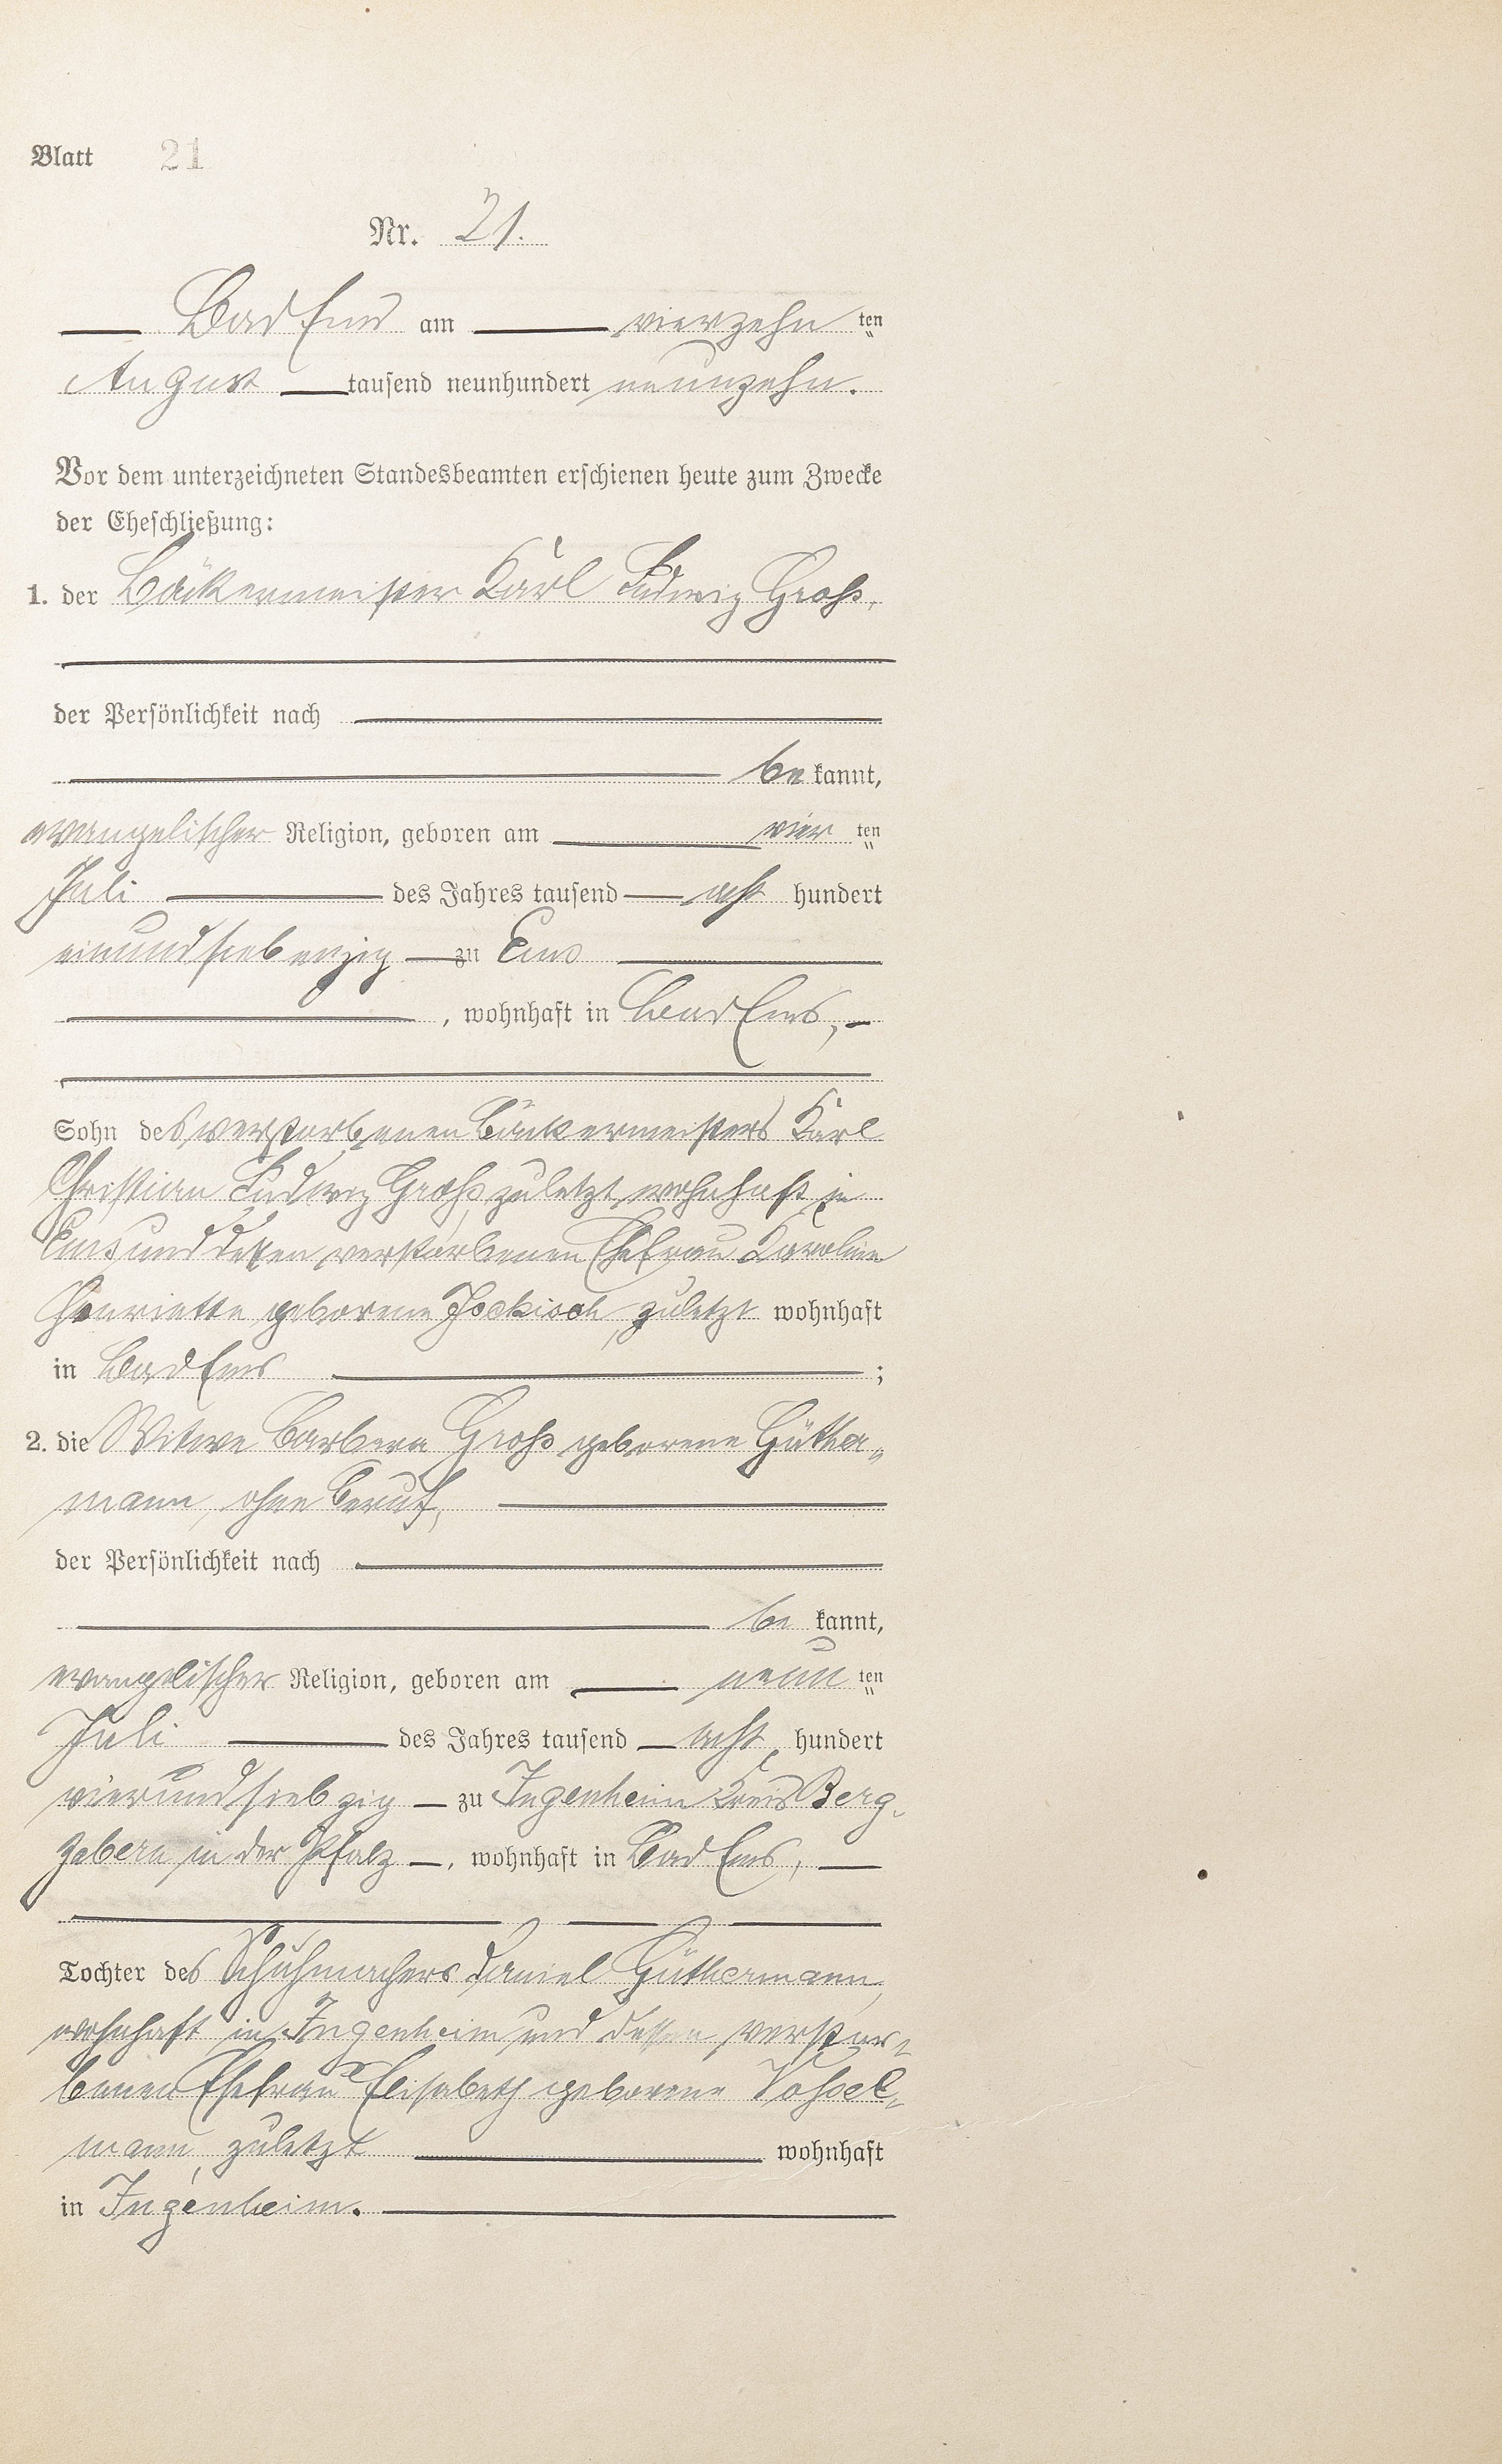 Blatt 21
Nr. 21.
Bad Ems am vierzehn ten
August tausend neunhundert neunzehn.
Vor dem unterzeichneten Standesbeamten erschienen heute zum Zwecke
der Eheschließung:
1. der Bäckermeister Karl Ludwig Groß,
der Persönlichkeit nach
be kannt,
evangelischer Religion, geboren am vier ten
Juli des Jahres tausend acht hundert
einundsiebenzig zu Ems
, wohnhaft in Bad Ems,
Sohn des verstorbenen Bäckermeisters Karl
Christian Ludwig Groß, zuletzt wohnhaft in
Ems und dessen verstorbenen Ehefrau Karoline
Henriette geborene Jockisch, zuletzt wohnhaft
in Bad Ems ;
2. die Witwe Barbara Groß geborene Güther-
mann, ohne Beruf,
der Persönlichkeit nach
be kannt,
evangelischer Religion, geboren am neun ten
Juli des Jahres tausend acht hundert
vierundsiebzig zu Ingenheim Kreis Berg-
zabern in der Pfalz , wohnhaft in Bad Ems,
Tochter des Schuhmachers Daniel Güthermann,
wohnhaft in Ingenheim und dessen verstor-
benen Ehefrau Elisabeth geborene
mann, zuletzt wohnhaft
in Ingenheim.